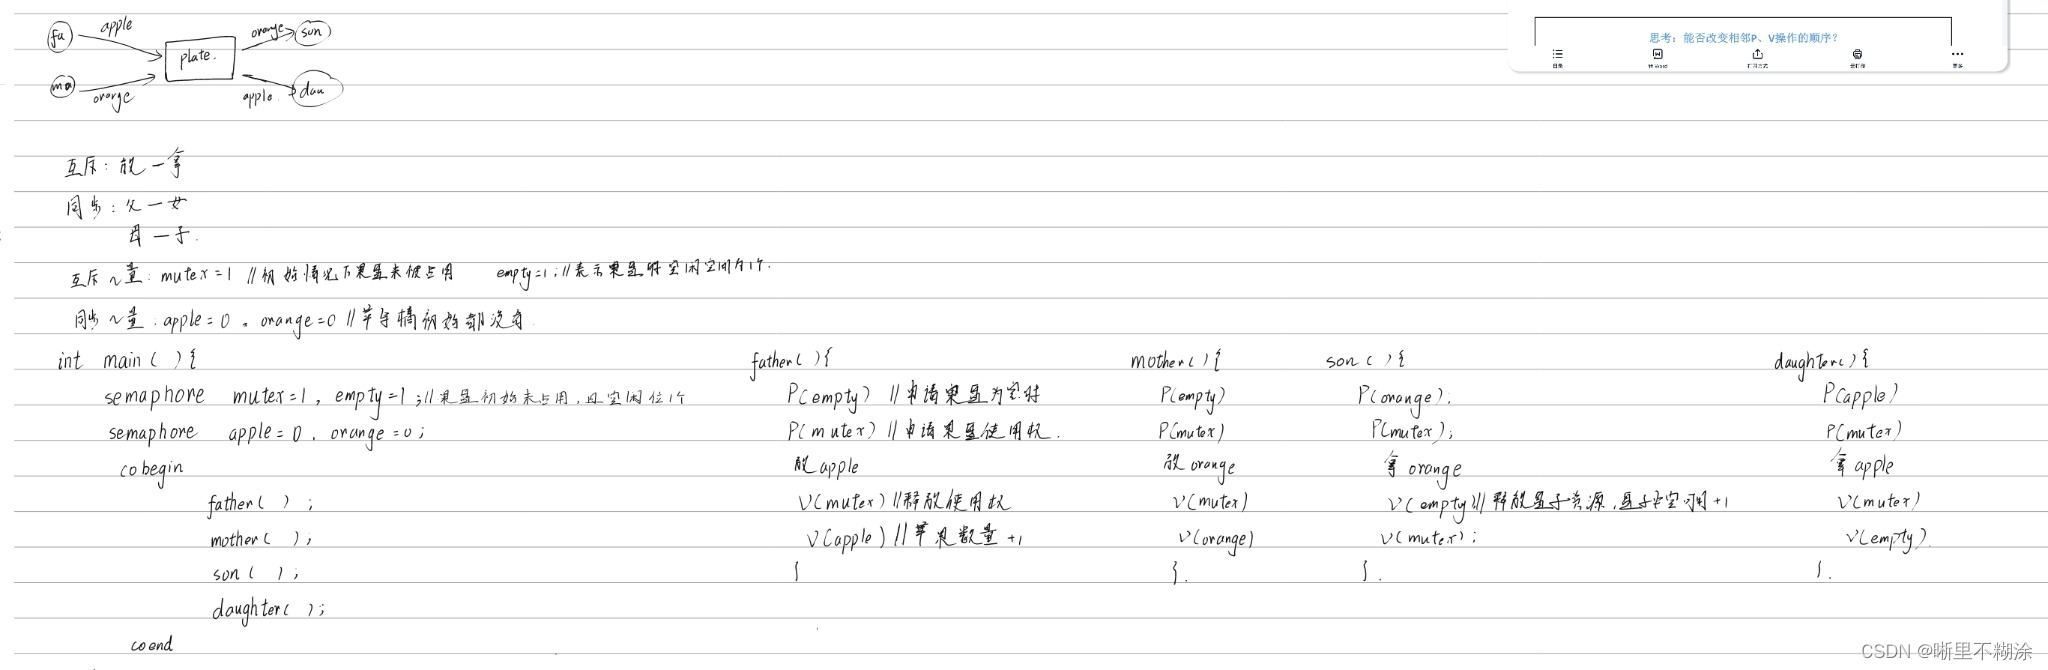 fa apple orange son
plate.
ma orange apple dau
思考：能否改变相邻P、V操作的顺序？
目录
更多
互斥：放一拿
同步：父一女
母一子.
互斥~量：mutex=1 //初始情况下果盘未被占用 empty=1;//表示果盘时空闲空间为1个.
同步~量.apple=0。orange=0 //苹与橘初始都没有.
int main( ){
semaphore mutex=1, empty=1;//果盘初始未占用,且空闲位1个
semaphore apple=0. orange=0;
cobegin
father( );
mother( );
son( );
daughter( );
coend
father( ){
P(empty) //申请果盘为空时
P(mutex) //申请果盘使用权.
放apple
V(mutex) //释放使用权
V(apple) //苹果数量+1
}
mother( ){
P(empty)
P(mutex)
放orange
V(mutex)
V(orange)
}.
son( ){
P(orange);
P(mutex);
拿orange
V(empty)//释放盘子资源,盘子空空间+1
V(mutex);
}.
daughter( ){
P(apple)
P(mutex)
拿apple
V(mutex)
V(empty).
}.
CSDN @晰里不糊涂